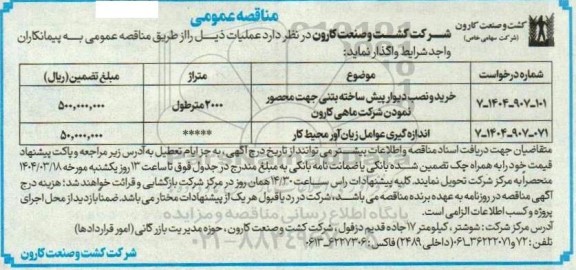 مناقصه عمومی
کشت و صنعت کارون
(شرکت سهامی خاص)
شرکت کشت و صنعت کارون در نظر دارد عملیات ذیل را از طریق مناقصه عمومی به پیمانکاران
واجد شرایط واگذار نماید:
شماره درخواست موضوع متراژ مبلغ تضمین (ریال)
۷-۱۴۰۴-۹۰۷-۱۰۱ خرید و نصب دیوار پیش ساخته بتنی جهت محصور نمودن شرکت ماهی کارون ۲۰۰۰ متر طول ۵۰۰,۰۰۰,۰۰۰
۷-۱۴۰۴-۹۰۷-۰۷۱ اندازه گیری عوامل زیان آور محیط کار ***** ۵۰,۰۰۰,۰۰۰
متقاضیان جهت دریافت اسناد مناقصه و اطلاعات بیشتر می توانند از تاریخ درج آگهی، به جز ایام تعطیل به آدرس زیر مراجعه و پاکت پیشنهاد
قیمت خود را به همراه چک تضمین شده بانکی یا ضمانت نامه بانکی به مبلغ مندرج در جدول فوق تا ساعت ۱۳ روز یکشنبه مورخه ۱۴۰۴/۰۳/۱۸
منحصراً به مرکز شرکت تحویل نمایند. کلیه پیشنهادات راس ساعت ۱۴/۳۰ همان روز در مرکز شرکت بازگشایی و قرائت خواهند شد؛ هزینه درج
آگهی مناقصه در روزنامه به عهده برنده مناقصه می باشد، شرکت در رد یا قبول هر یک از پیشنهادات مختار می باشد. ضمنا بازدید از محل اجرای
پروژه و کسب اطلاعات الزامی است.
آدرس مرکز شرکت: شوشتر، کیلومتر ۱۷ جاده قدیم دزفول، شرکت کشت و صنعت کارون، حوزه مدیریت بازرگانی (امور قراردادها)
تلفن: ۷۲ و ۰۶۱-۳۶۲۲۲۰۷۱ (داخلی ۲۴۸۹) فاکس: ۰۶۱۳-۶۲۲۷۳۰۶
شرکت کشت و صنعت کارون